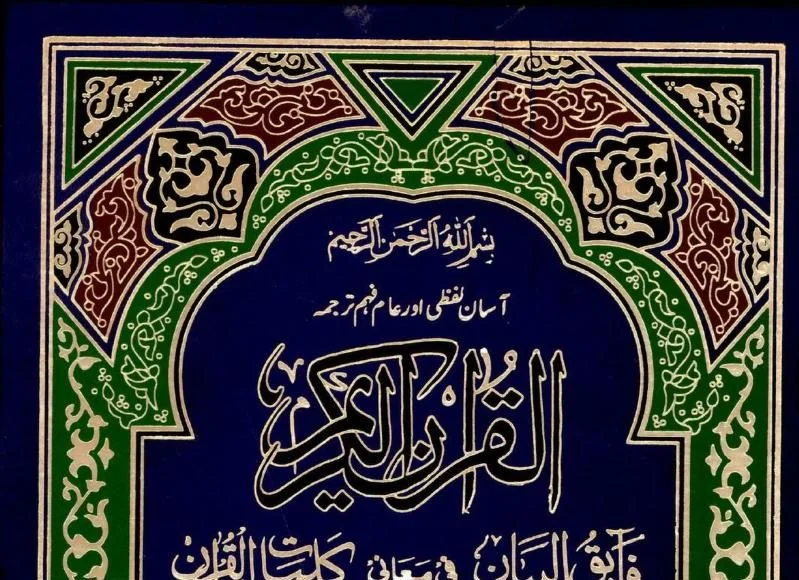 بسم الله الرحمن الرحيم
آسان لفظی اور عام فہم ترجمہ
القرآن الكريم
فائق البيان في معاني كلمات القرآن